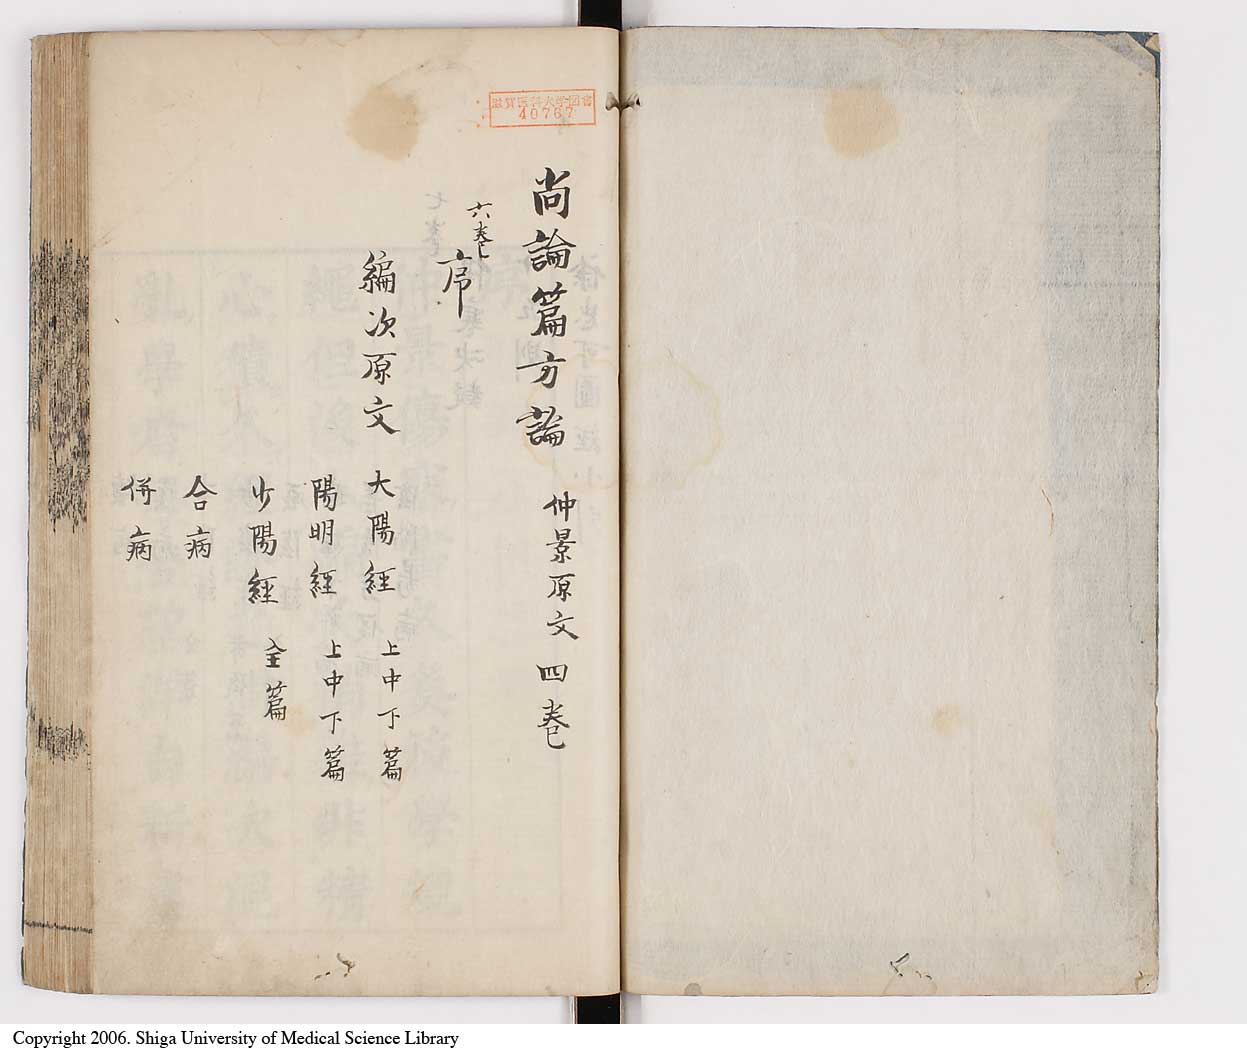 滋賀医科大学図書
40767
尚論篇方論 仲景原文四巻
六巻
序
編次原文 大陽經 上中下篇
陽明經 上中下篇
少陽經 全篇
合病
併病
Copyright 2006. Shiga University of Medical Science Library